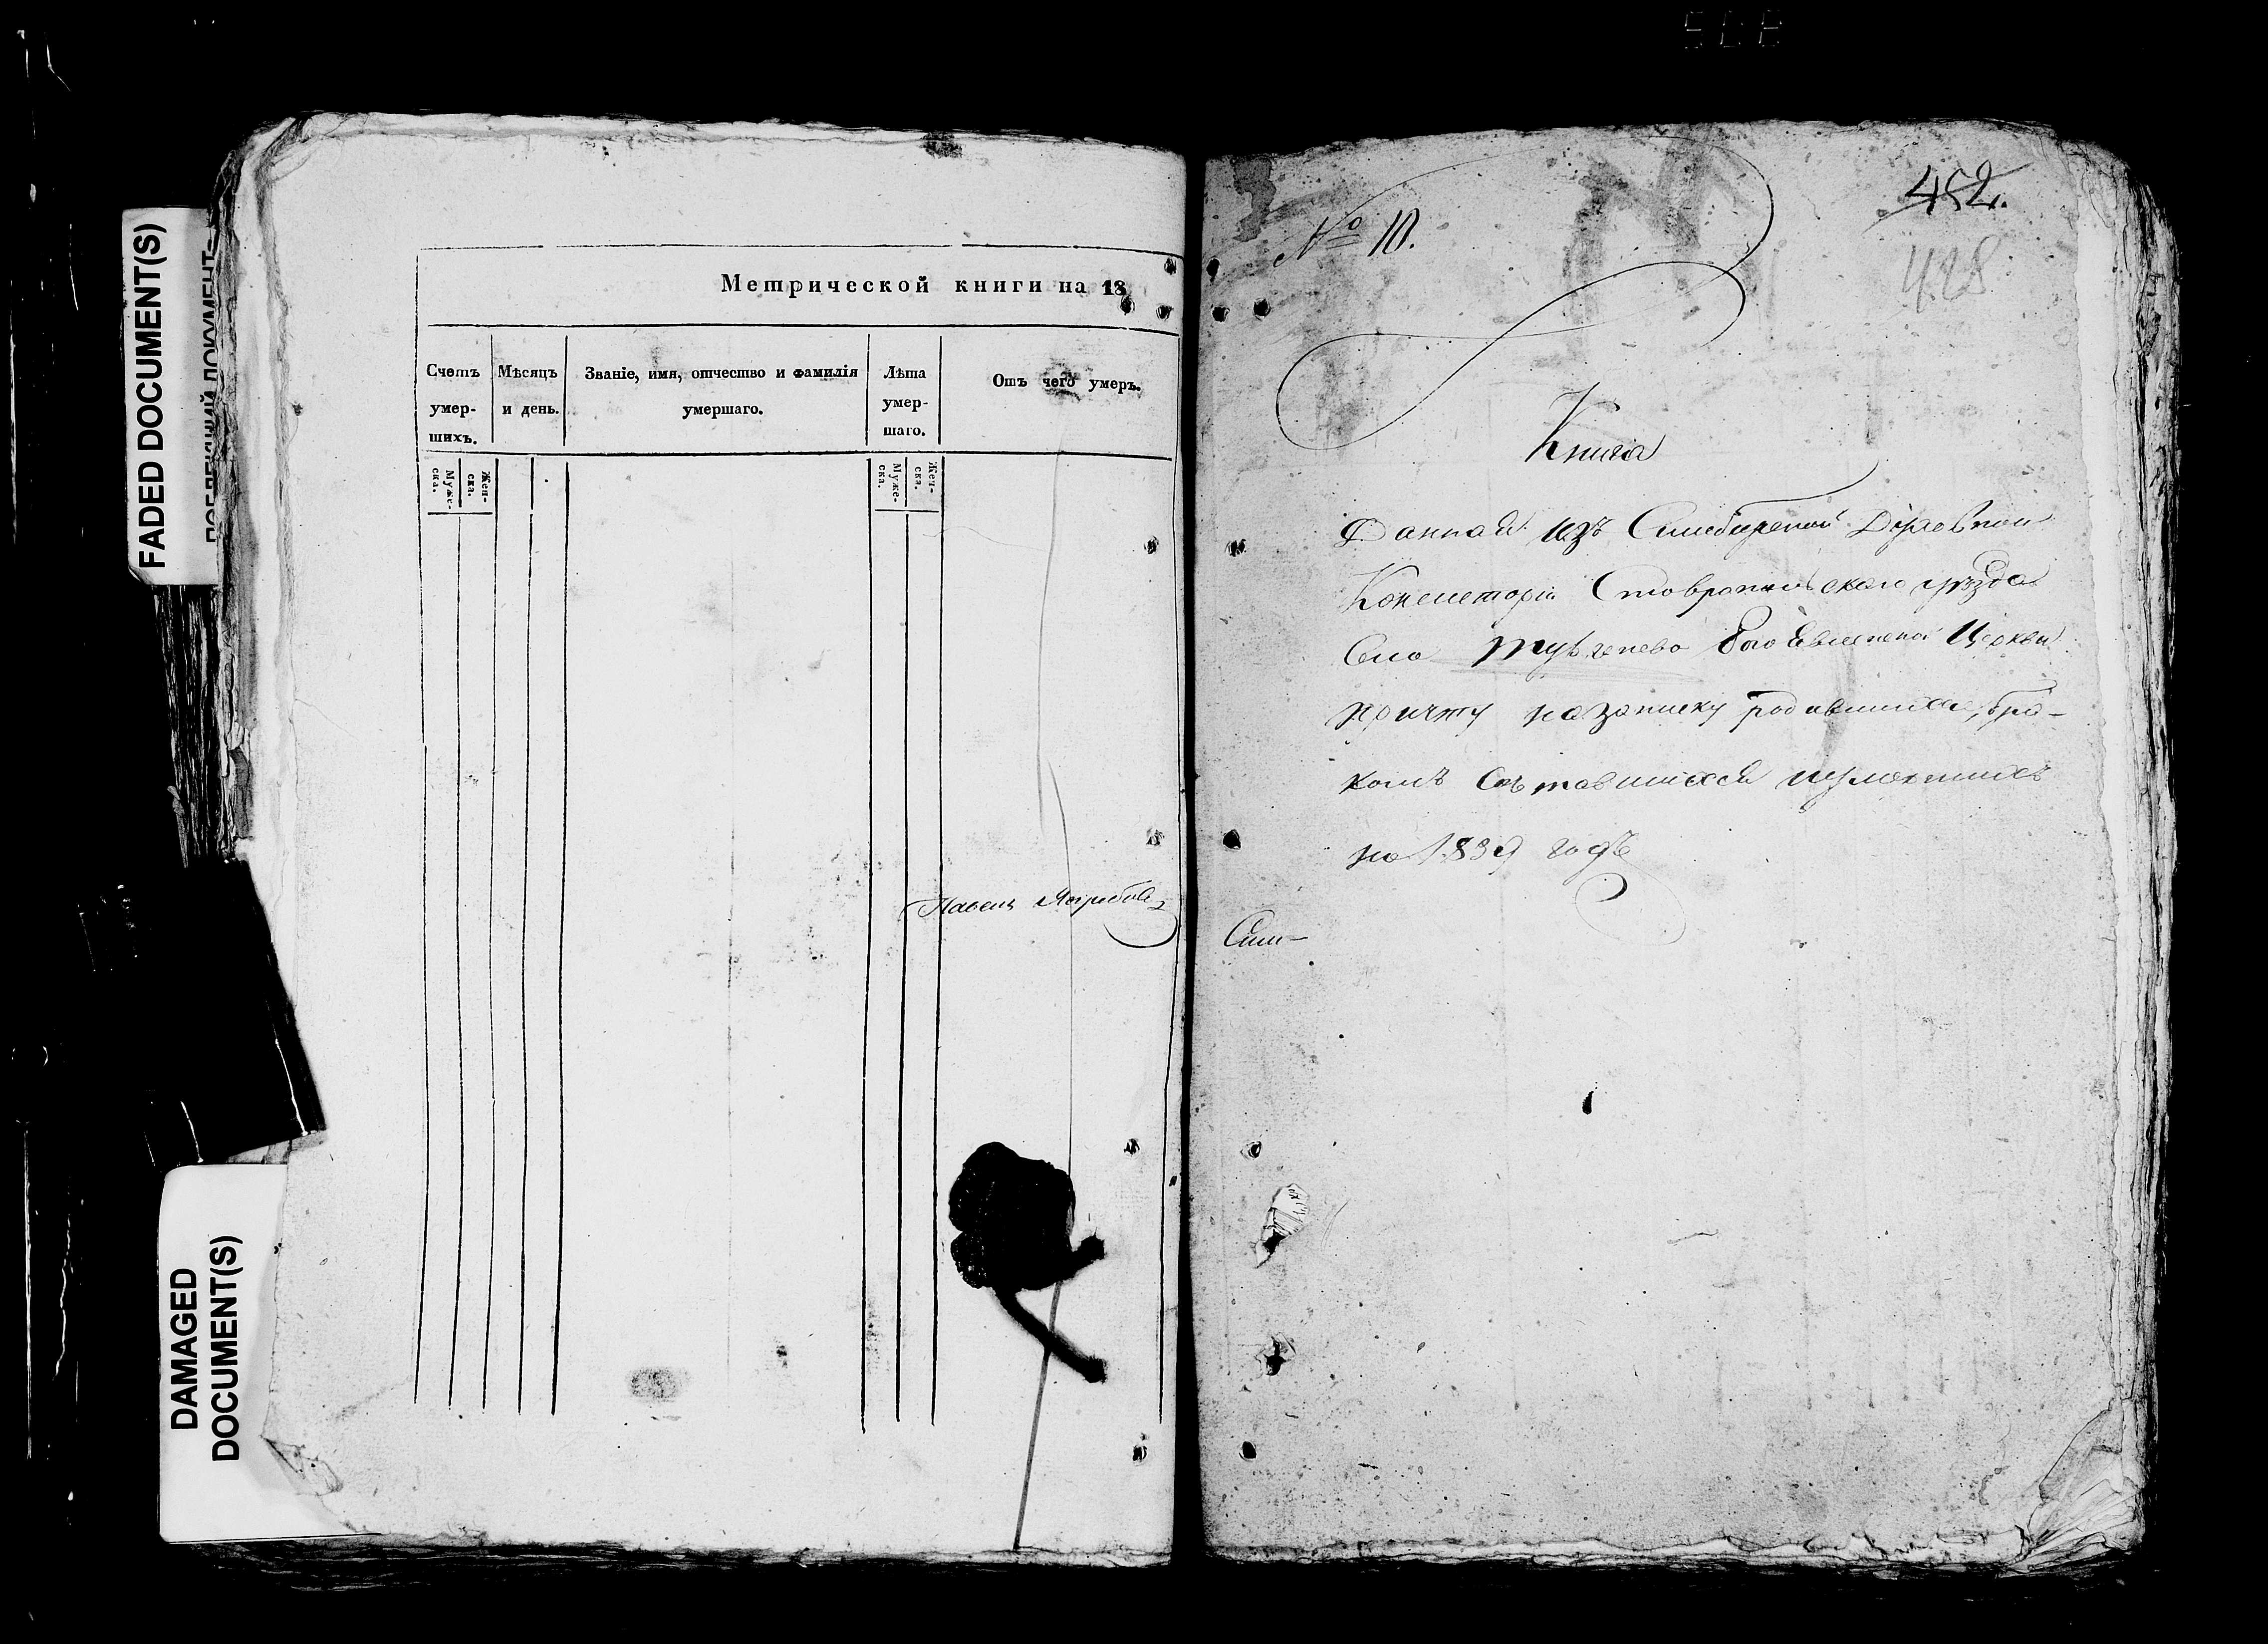 FADED DOCUMENT(S)
DAMAGED
DOCUMENT(S)
Метрической книги на 18
Счетъ
умер-
шихъ.
Мѣсяцъ
и день.
Званіе, имя, отчество и фамилія
умершаго.
Лѣта
умер-
шаго.
Отъ чего умеръ.
Муже-
ска.
Жен-
ска.
Муже-
ска.
Жен-
ска.
№ 10.
452.
428
Книга
Данная изъ Симбирской Духовной
Консисторіи Ставропольскаго уѣзда
Села Тургенево Бого Евленской Церкви
причту на записку родившихся, бра-
комъ Сочтавшихся и умершихъ
на 1839 годъ
Сим-